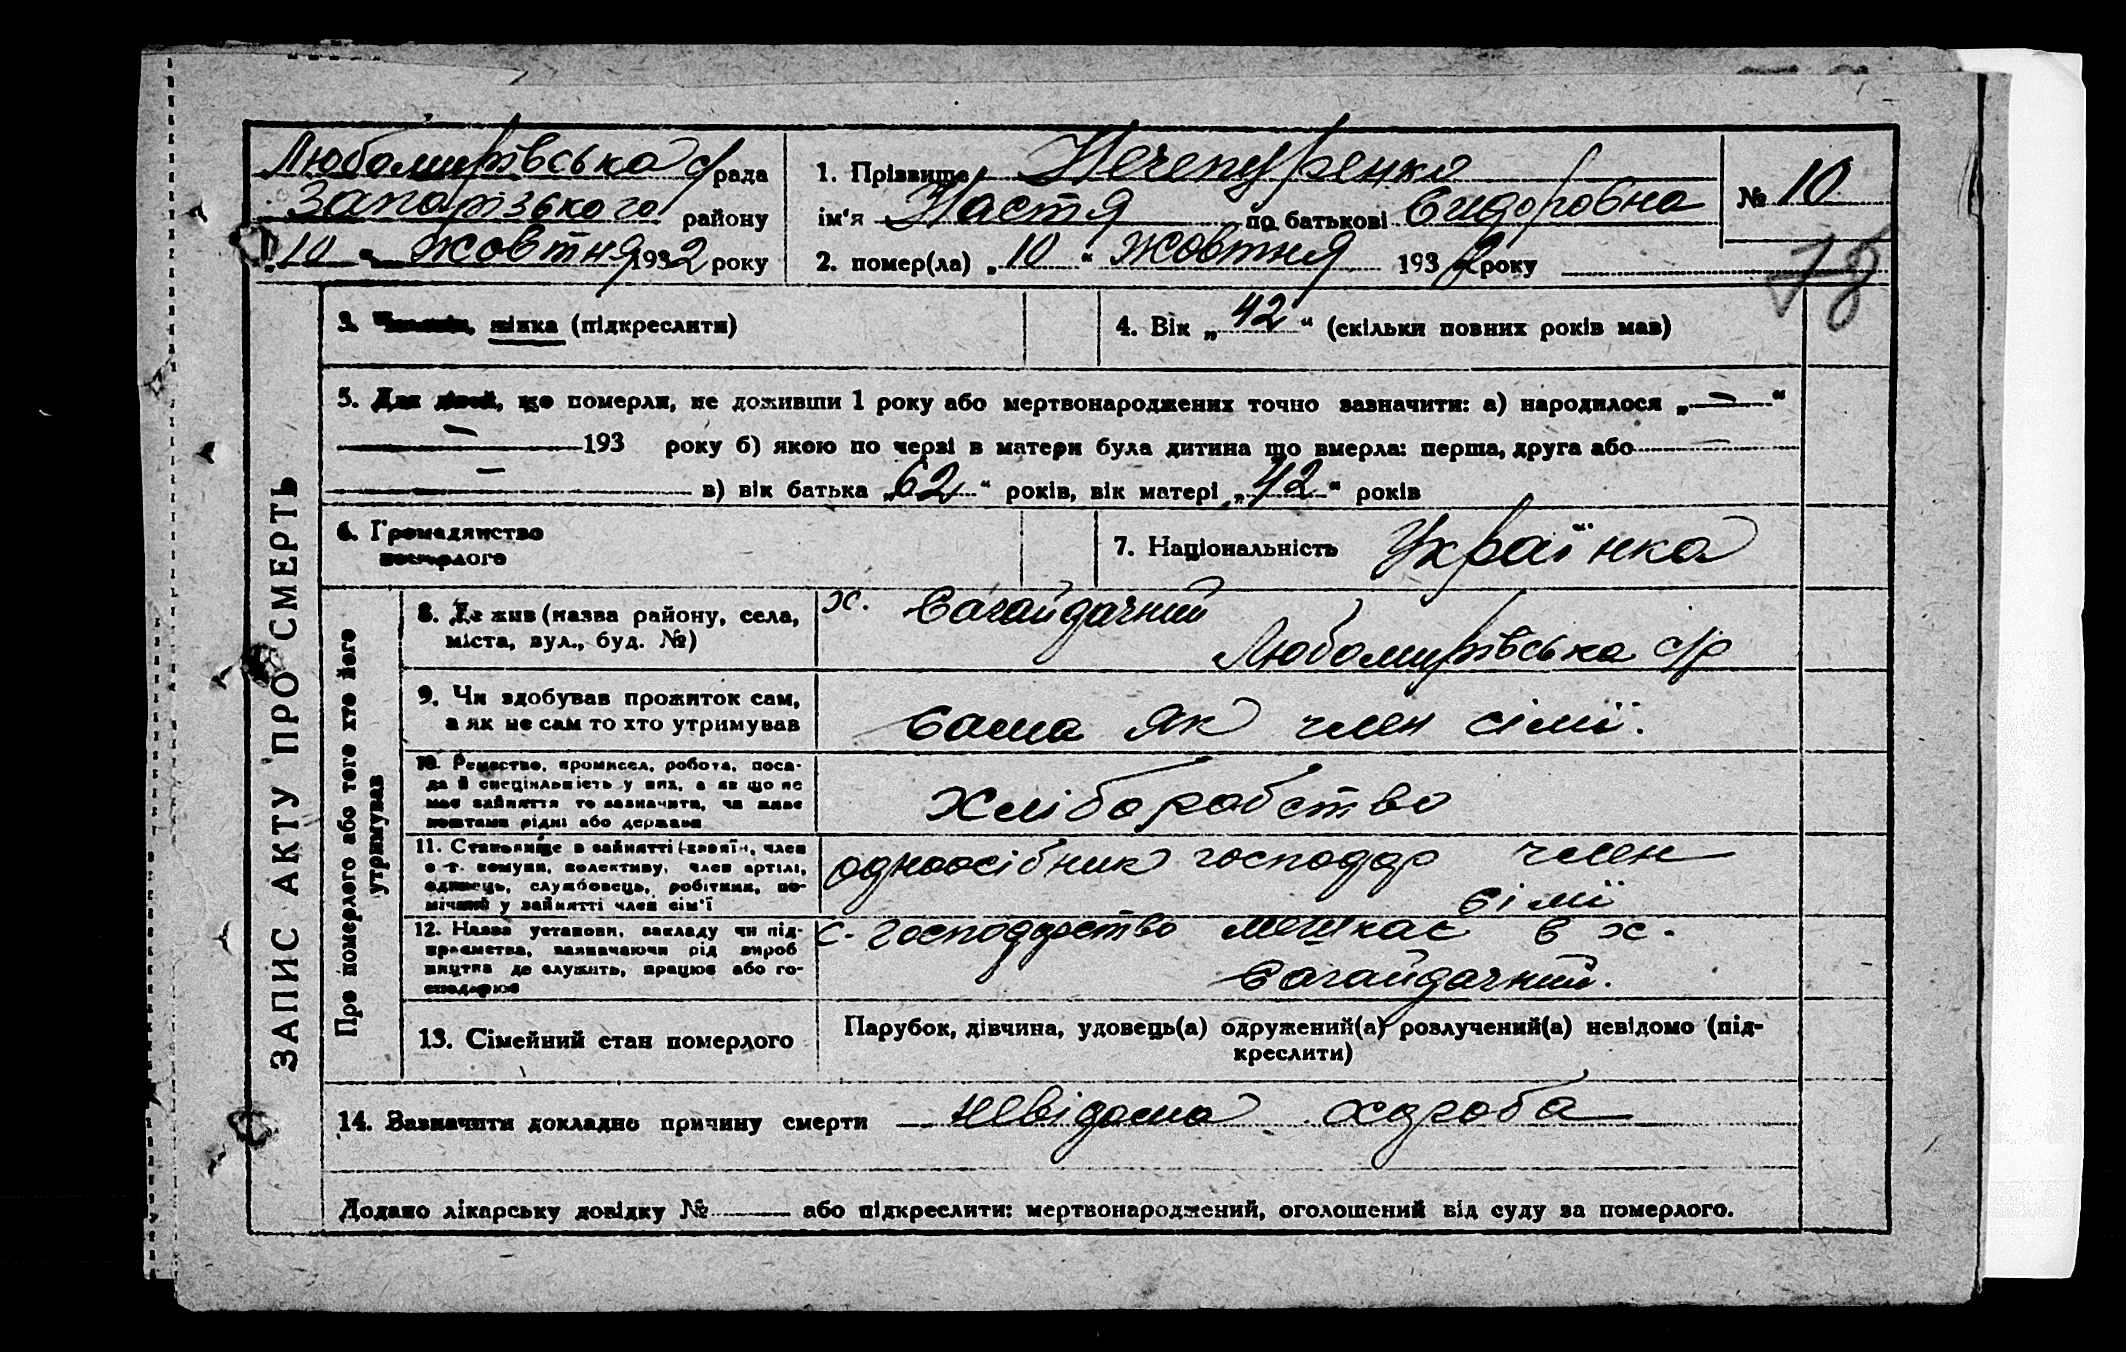 Любомирівська с/рада
Запорізького району
„10“ жовтня 1932 року
1. Прізвище Нечепуренко
ім'я Настя по батькові Сидоровна
2. помер(ла) „10“ жовтня 1932 року
№ 10
78
ЗАПИС АКТУ ПРО СМЕРТЬ
3. Чоловік, жінка (підкреслити)
4. Вік „42“ (скільки повних років мав)
5. Для дітей, що померли, не доживши 1 року або мертвонароджених точно зазначити: а) народилося „—“
— 193 року б) якою по черзі в матери була дитина що вмерла: перша, друга або —
— в) вік батька „62“ років, вік матері „42“ років
6. Громадянство
померлого
7. Національність Українка
Про померлого або того хто його
утримував
8. Де жив (назва району, села,
міста, вул., буд. №)
х. Сагайдачний
Любомирівська с/р
9. Чи здобував прожиток сам,
а як не сам то хто утримував
Сама як член сімї.
10. Ремество, промисел, робота, поса-
да й спеціяльність у них, а як що не
має зайняття то зазначити, чи живе
коштами рідні або держави
Хліборобство
11. Становище в зайнятті (хазяїн, член
с.-г. комуни, колективу, член артілі,
одинець, службовець, робітник, по-
мічний у зайнятті член сім'ї
одноосібник господар член
сімї
12. Назва установи, закладу чи під-
приємства, зазначаючи рід вироб
ництва де служить, працює або го-
сподарює
с. господарство мешкає в х.
Сагайдачний.
13. Сімейний стан померлого
Парубок, дівчина, удовець(а) одружений(а) розлучений(а) невідомо (під-
креслити)
14. Зазначити докладно причину смерти невідома хороба
Додано лікарську довідку № або підкреслити: мертвонароджений, оголошений від суду за померлого.